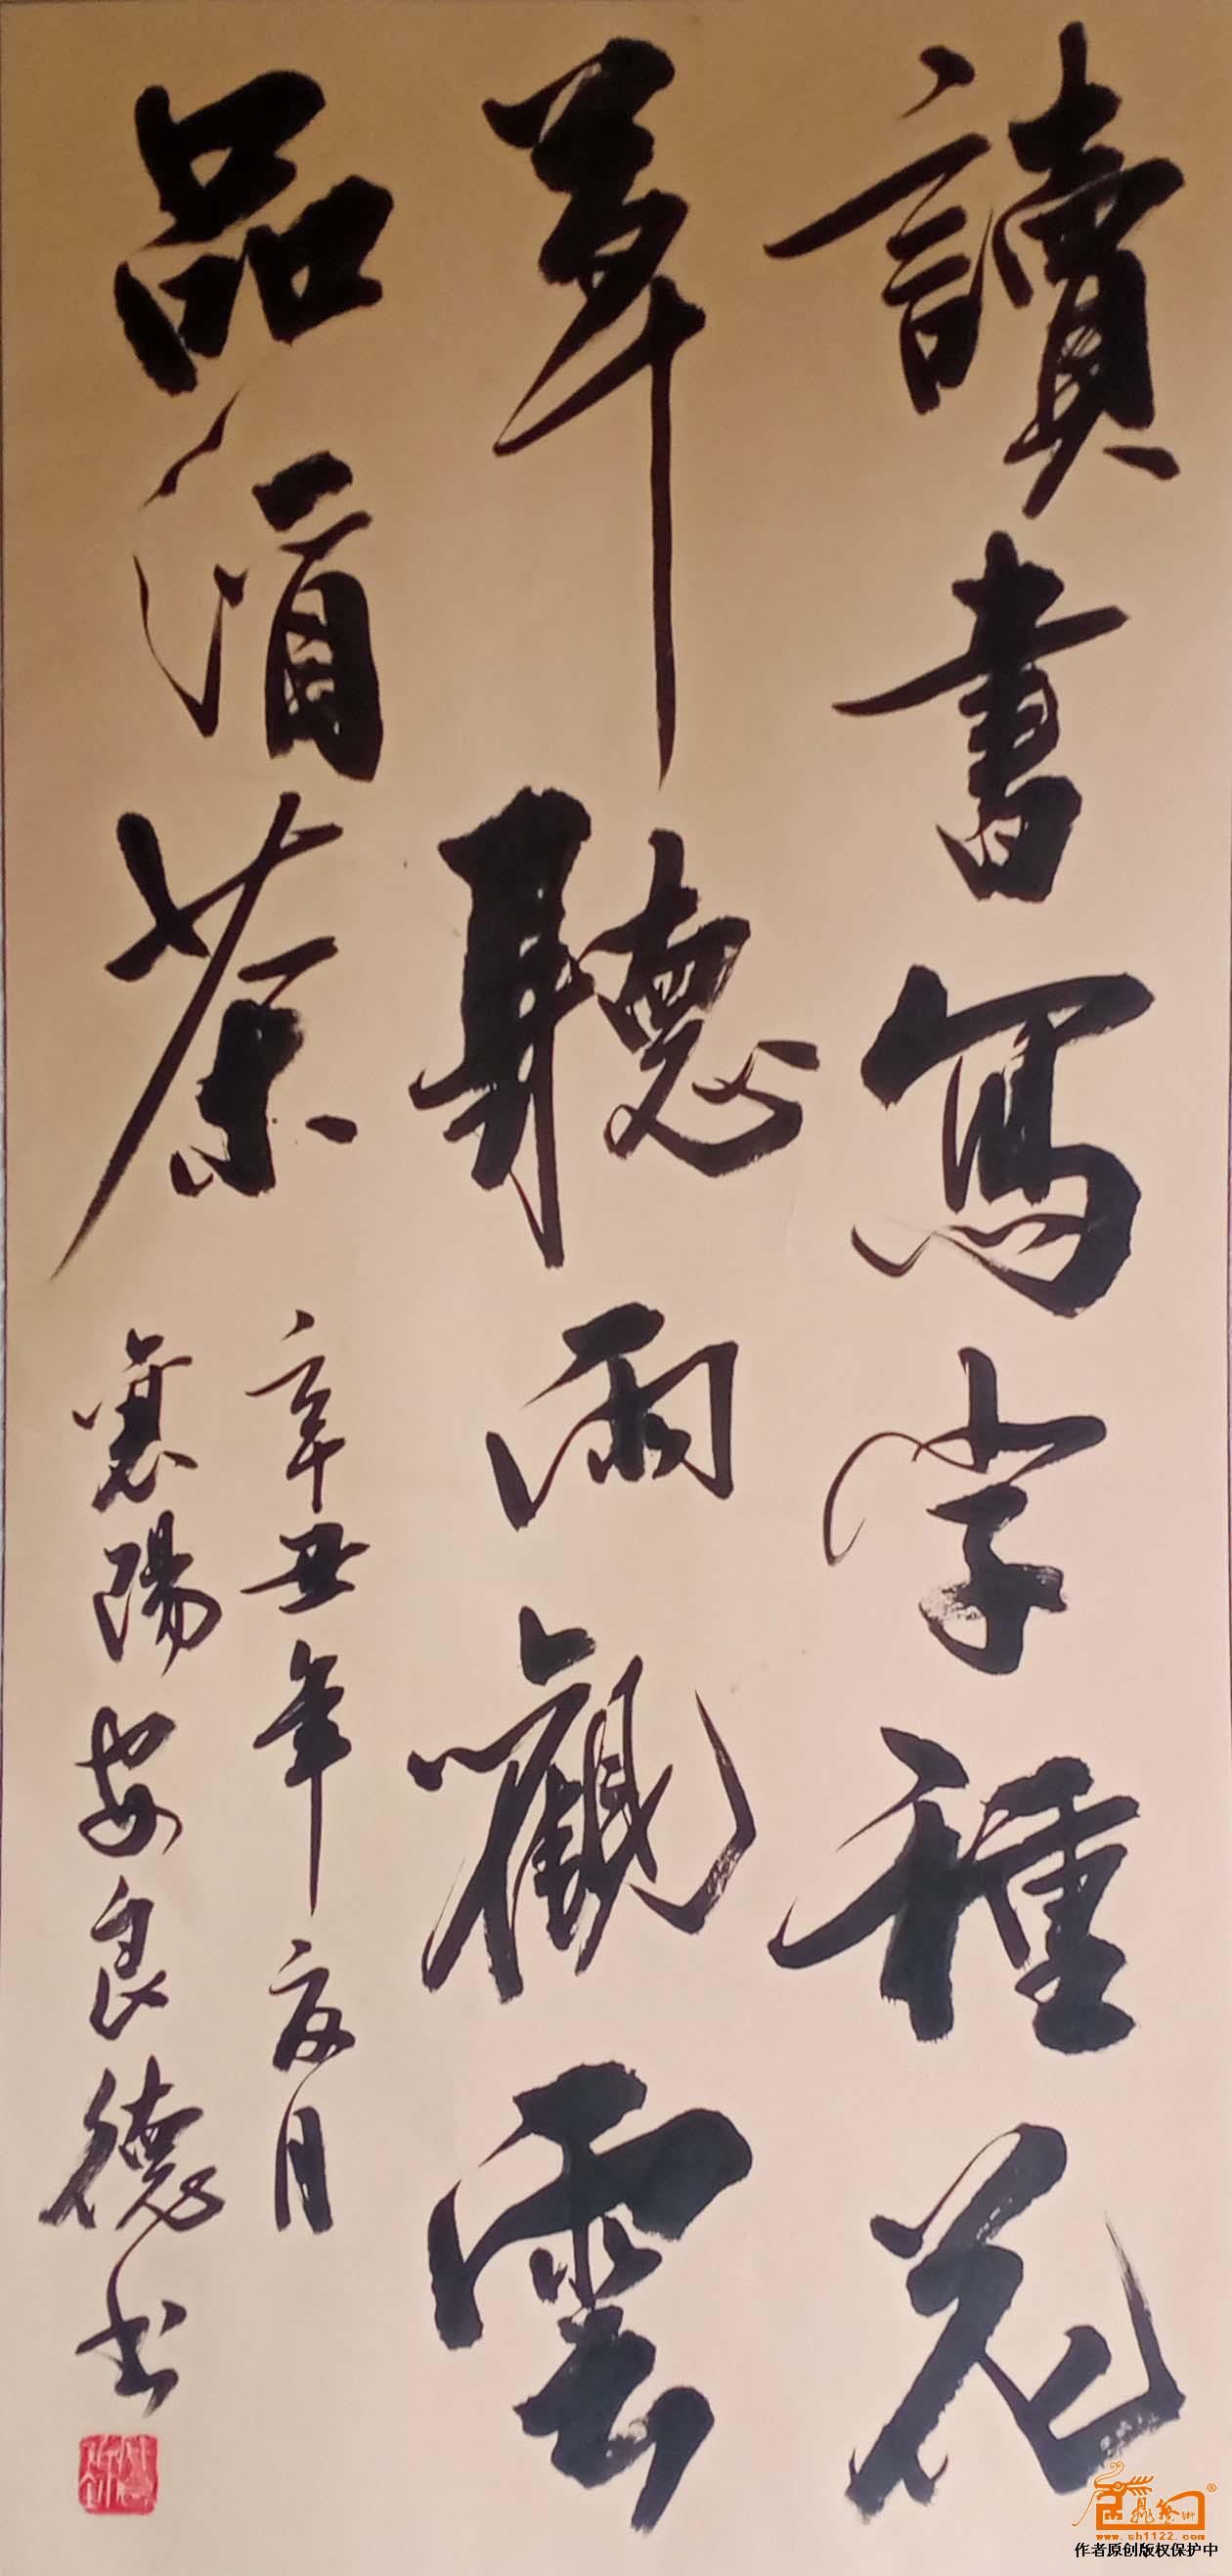 讀書寫字種花
草聽雨觀雲
品酒茶
辛丑年夏月
襄陽安良德书
www.sh1122.com
作者原创版权保护中